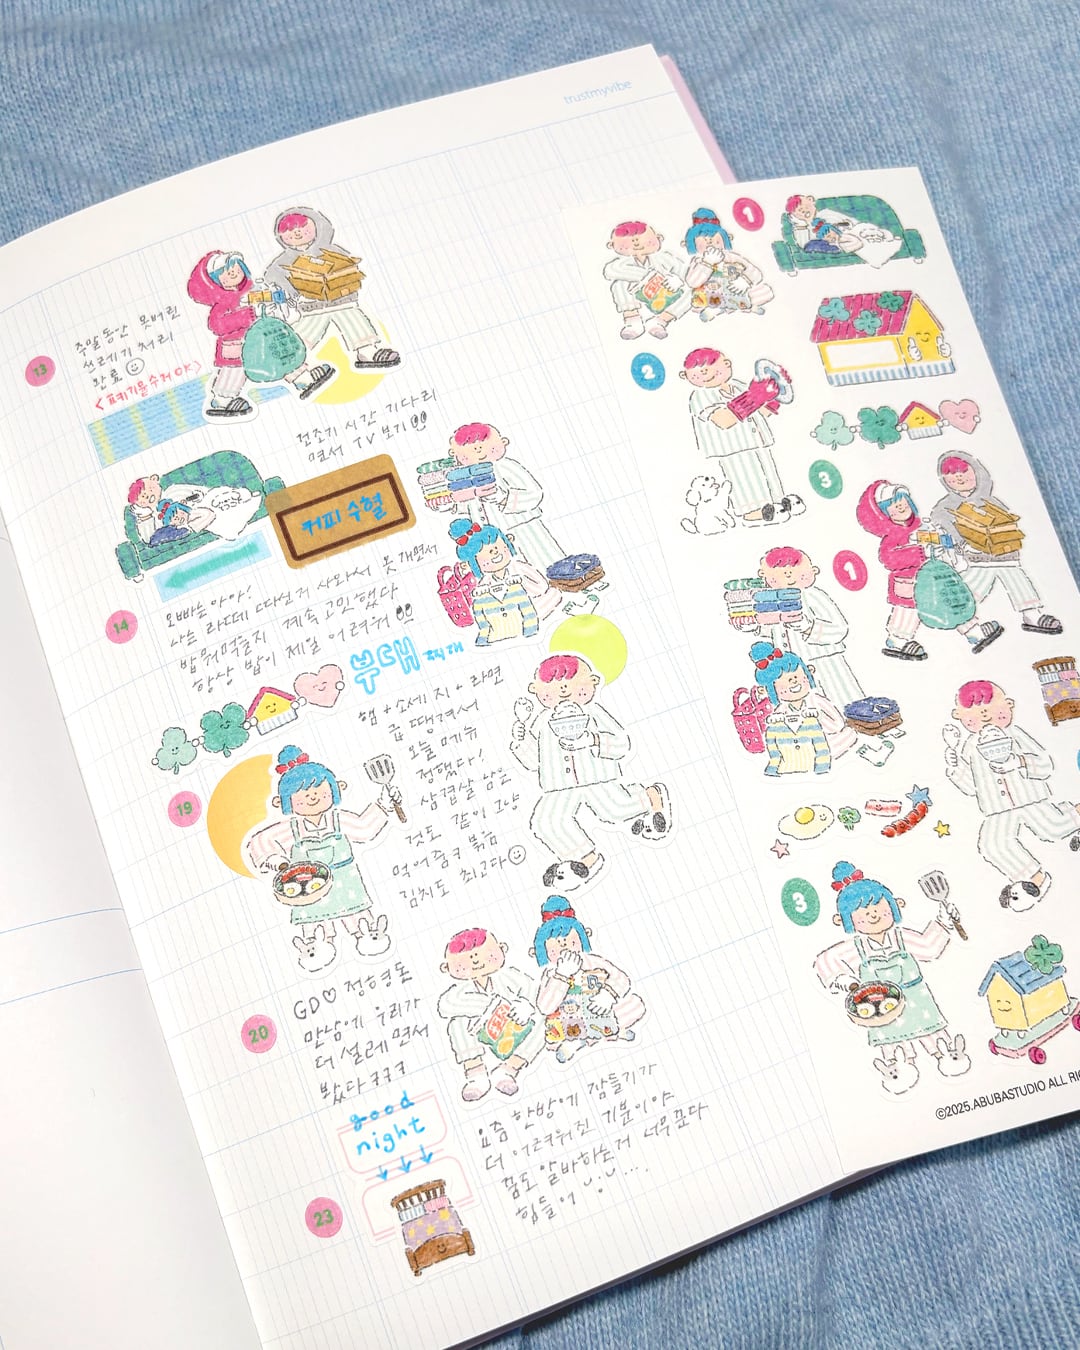 trustmyvibe
13
주말동안 못버린
쓰레기 처리
완료
<폐기물수거 OK>
건조기 시간 기다리
면서 TV 보기
커피 수혈
14
오빠는 아아!
나는 라떼 따신거 사와서 옷개면서
밥 뭐먹을지 계속 고민했다
항상 밥이 제일 어려워
부대찌개
햄+소세지+라면
급 땡겨서
오늘 메뉴
정했다!
삼겹살 남은
것도 같이 구워
먹어줌ㅋ 볶음
김치도 최고다
19
20
GD♡정형돈
만남에 우리가
더 설레면서
봤다ㅋㅋㅋ
good
night
23
요즘 한방에 잠들기가
더 어려워진 기분이야
꿈도 알바하는거 너무꾼다
힘들어
1
2
3
1
3
©2025.ABUBASTUDIO ALL